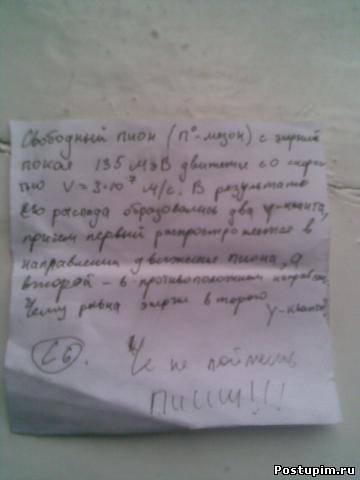 Свободный пион (π°-мезон) с энергией
покоя 135 МэВ движется со скорос
тью V=3·10⁷ м/с. В результате
его распада образовались два γ-кванта,
причем первый распространяется в
направлении движение пиона, а
второй - в противоположном направл.
Чему равна энергия второго
γ-кванта
C6.
Че не поймешь
ПИШИ!!!
Postupim.ru